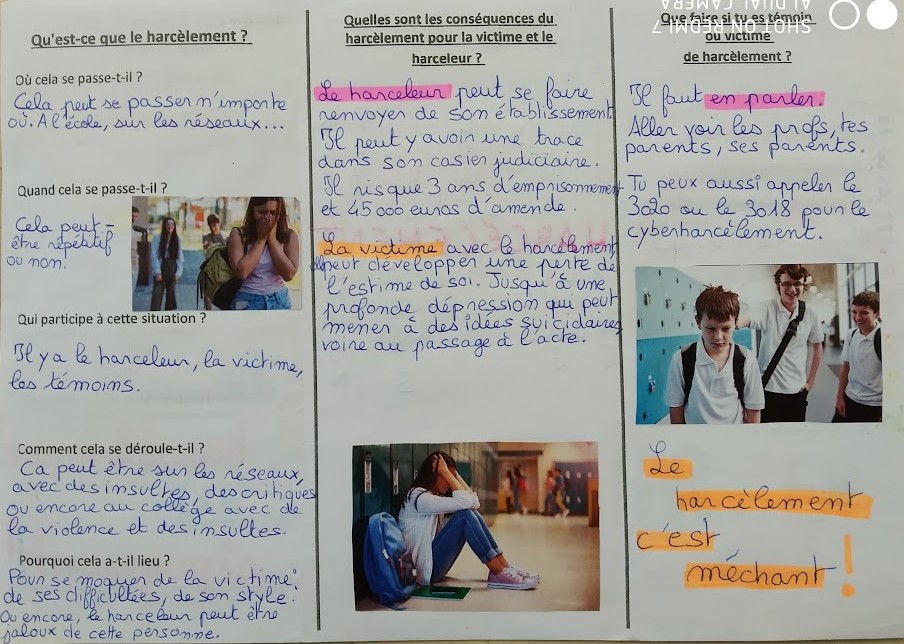 Qu'est-ce que le harcèlement ?
Où cela se passe-t-il ?
Cela peut se passer n'importe
où. A l'école, sur les réseaux...
Quand cela se passe-t-il ?
Cela peut-
être répétitif
ou non.
Qui participe à cette situation ?
Il y a le harceleur, la victime,
les témoins.
Comment cela se déroule-t-il ?
Ca peut être sur les réseaux,
avec des insultes, des critiques
ou encore au collège avec de
la violence et des insultes.
Pourquoi cela a-t-il lieu ?
Pour se moquer de la victime:
de ses difficultées, de son style.
Ou encore, le harceleur peut être
jaloux de cette personne.
Quelles sont les conséquences du
harcèlement pour la victime et le
harceleur ?
Le harceleur peut se faire
renvoyer de son établissement.
Il peut y avoir une trace
dans son casier judiciaire.
Il risque 3 ans d'emprisonnement
et 45 000 euros d'amende.
La victime avec le harcèlement,
peut développer une perte de
l'estime de soi. Jusqu'à une
profonde dépression qui peut
mener à des idées suicidaires,
voire au passage à l'acte.
Que faire si tu es témoin
ou victime
de harcèlement ?
SHOT ON REDMI 7
AI DUAL CAMERA
Il faut en parler.
Aller voir les profs, tes
parents, ses parents.
Tu peux aussi appeler le
3020 ou le 3018 pour le
cyberharcèlement.
Le
harcèlement
c'est
méchant !